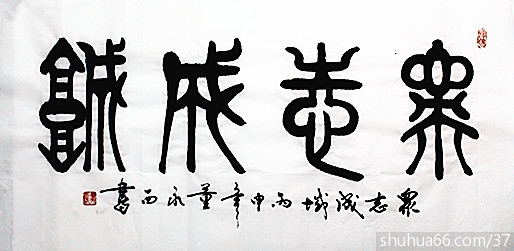 眾志成城
眾志成城丙申年董永西書
shuhua66.com/37